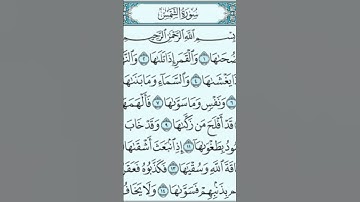 سُورَةُ الشَّمْسِ
بِسْمِ اللَّهِ الرَّحْمَٰنِ الرَّحِيمِ
ضُحَىٰهَا ١ وَالْقَمَرِ إِذَا تَلَىٰهَا ٢ وَالنَّ
يَغْشَىٰهَا ٤ وَالسَّمَاءِ وَمَا بَنَىٰهَا
٦ وَنَفْسٍ وَمَا سَوَّىٰهَا ٧ فَأَلْهَمَهَا
قَدْ أَفْلَحَ مَن زَكَّىٰهَا ٩ وَقَدْ خَابَ
مُودُ بِطَغْوَىٰهَا ١١ إِذِ انبَعَثَ أَشْقَىٰهَا
قَةَ اللَّهِ وَسُقْيَٰهَا ١٣ فَكَذَّبُوهُ فَعَقَر
م بِذَنبِهِمْ فَسَوَّىٰهَا ١٤ وَلَا يَخَافُ